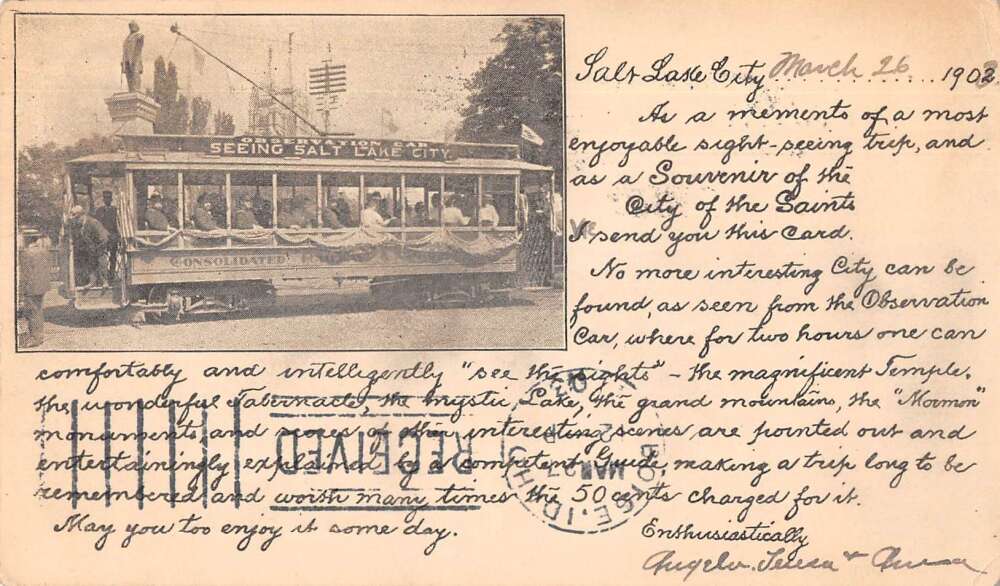 OBSERVATION CAR
SEEING SALT LAKE CITY.
CONSOLIDATED
Salt Lake City March 26 1903
As a memento of a most
enjoyable sight-seeing trip, and
as a Souvenir of the
City of the Saints
We
I send you this Card.
No more interesting City can be
found, as seen from the Observation
Car, where for two hours one can
comfortably and intelligently "see the sights" - the magnificent Temple,
the wonderful Tabernacle, the Mystic Lake, the grand mountains, the "Mormon"
monuments and scores of other interesting scenes are pointed out and
entertainingly explained by a competent Guide, making a trip long to be
remembered and worth many times the 50 cents charged for it.
May you too enjoy it some day.
Enthusiastically
Angelo. Teresa +
RECEIVED
BOISE, IDAHO
MAR 27